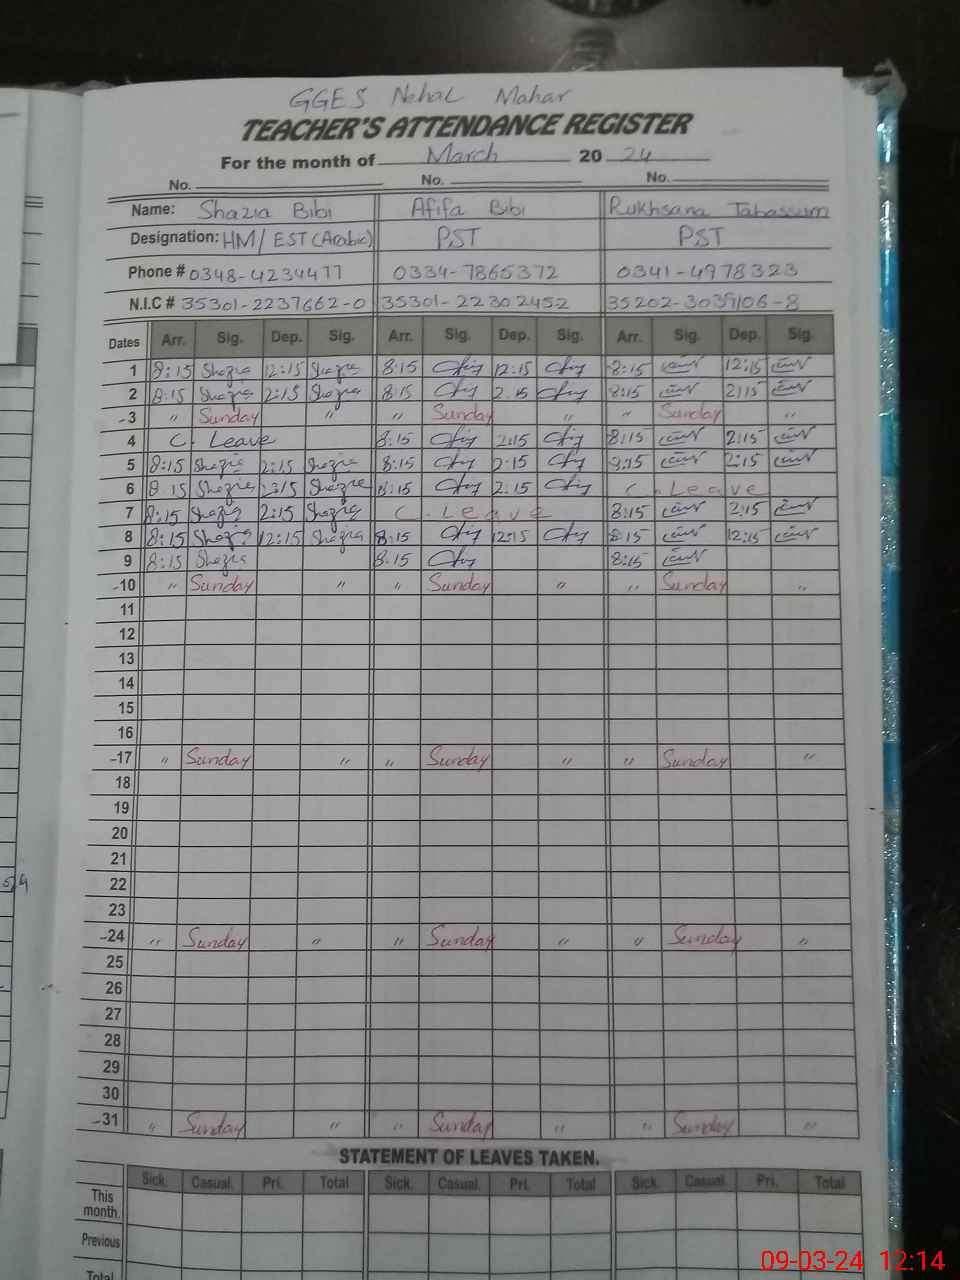 GGES Nehal Mahar
TEACHER'S ATTENDANCE REGISTER
For the month of March 20 24
No. No. No.
Name: Shazia Bibi Afifa Bibi Rukhsana Tabassum
Designation: HM/EST(Arabic) PST PST
Phone # 0348-4234477 0334-7865372 0341-4978323
N.I.C # 35301-2237662-0 35301-22302452 35202-3039106-8
Dates Arr. Sig. Dep. Sig. Arr. Sig. Dep. Sig. Arr. Sig. Dep. Sig.
1 8:15 Shazia 12:15 Shazia 8:15 12:15 8:15 12:15
2 8:15 Shazia 2:15 Shazia 8:15 2:15 8:15 2:15
-3 " Sunday " " Sunday " " Sunday "
4 C. Leave 8:15 2:15 8:15 2:15
5 8:15 Shazia 2:15 Shazia 8:15 2:15 8:15 2:15
6 8:15 Shazia 2:15 Shazia 8:15 2:15 C. Leave
7 8:15 Shazia 2:15 Shazia C. Leave 8:15 2:15
8 8:15 Shazia 12:15 Shazia 8:15 12:15 8:15 12:15
9 8:15 Shazia 8:15 8:15
-10 " Sunday " " Sunday " " Sunday "
11
12
13
14
15
16
-17 " Sunday " " Sunday " " Sunday "
18
19
20
21
22
23
-24 " Sunday " " Sunday " " Sunday "
25
26
27
28
29
30
-31 " Sunday " " Sunday " " Sunday "
STATEMENT OF LEAVES TAKEN.
Sick. Casual. Pri. Total Sick. Casual. Pri. Total Sick. Casual. Pri. Total
This
month.
Previous
Total
09-03-24 12:14